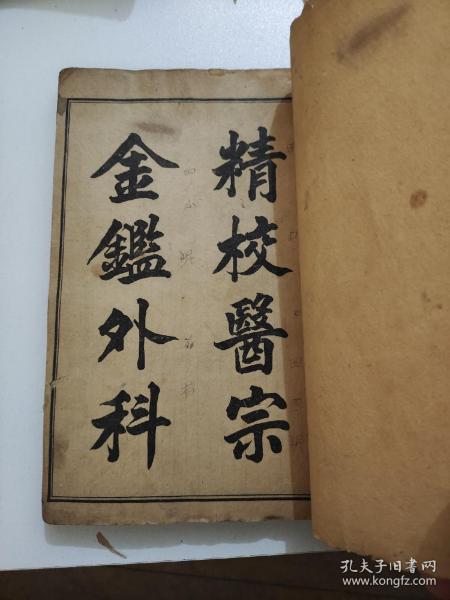 精校醫宗
金鑑外科
孔夫子旧书网
www.kongfz.com